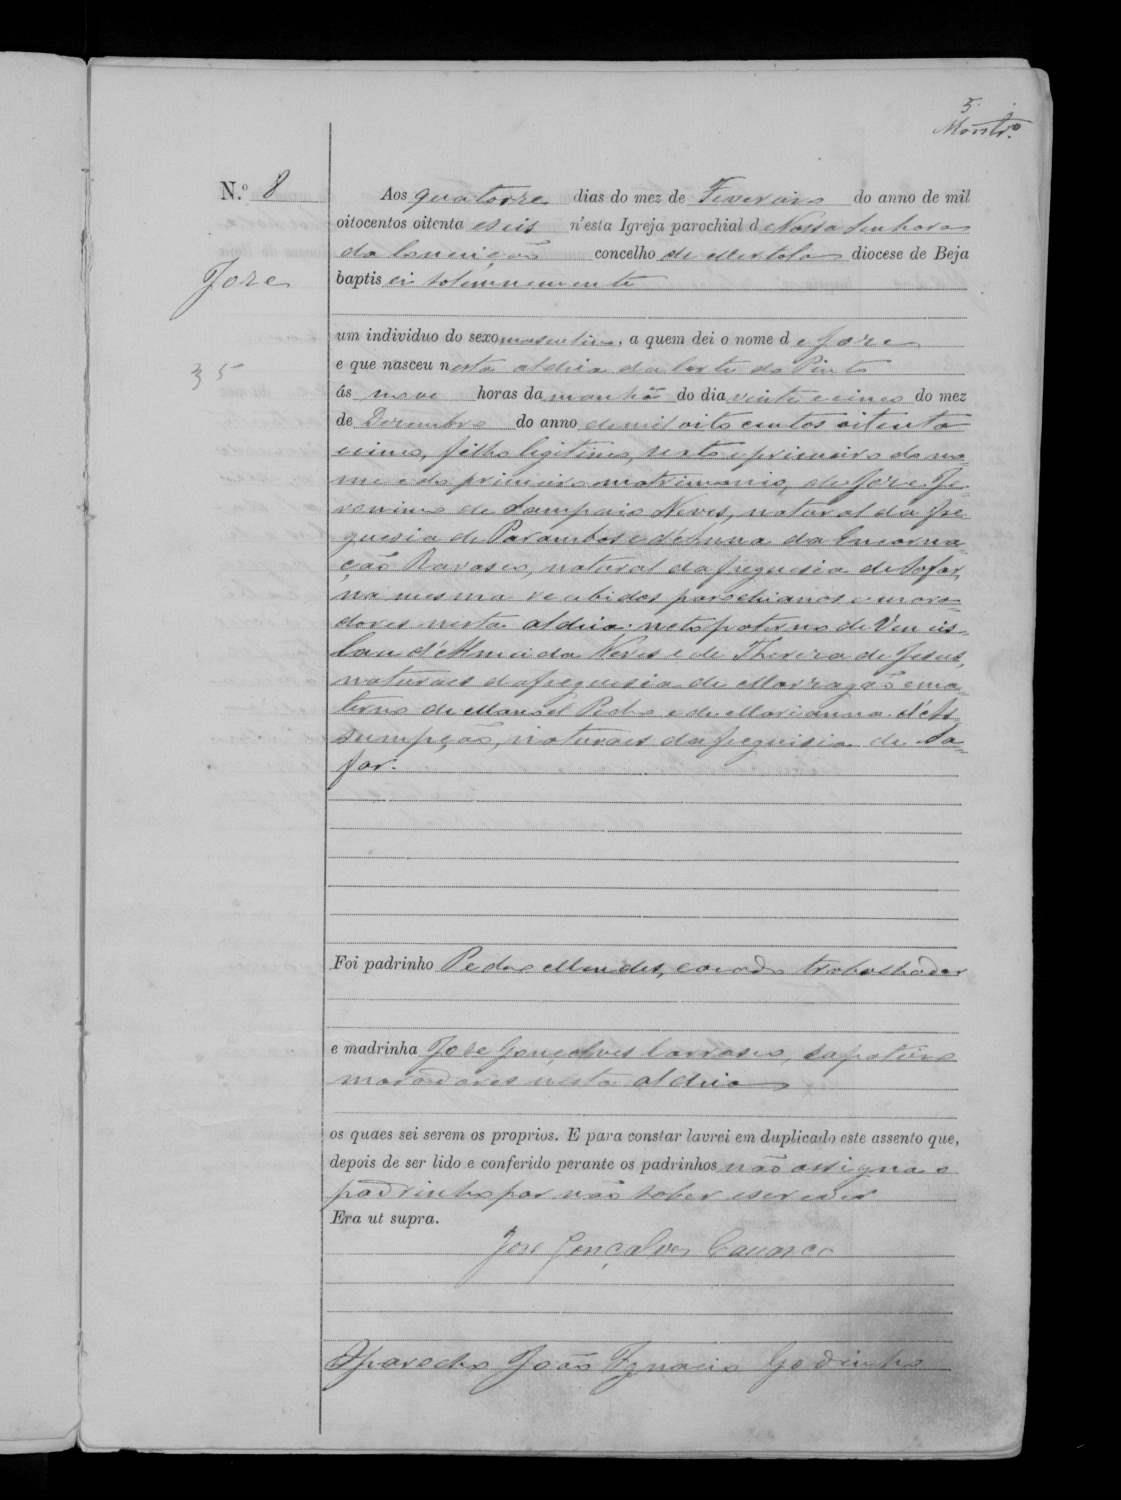 5.
Montr.º
N.º 8
José
35
Aos quatorze dias do mez de Fevereiro do anno de mil
oitocentos oitenta e seis n'esta Igreja parochial de Nossa Senhora
da Conceição concelho de Mertola diocese de Beja
baptisei solemnemente
um individuo do sexo masculino, a quem dei o nome de José
e que nasceu nesta aldeia da Corte do Pinto
ás nove horas da manhã do dia vinte e cinco do mez
de Dezembro do anno de mil oito centos oitenta
e cinco, filho legitimo, sexto e primeiro do no=
me e do primeiro matrimonio, de José Je=
ronimo de Sampaio Neves, natural da fre
guesia de Parambos e d'Anna da Encarna=
ção Ravasco, natural da freguesia de Safar,
na mesma recebidos parochianos e mora=
dores nesta aldeia: neto paterno de Vences=
lau d'Almeida Neves e de Thereza de Jesus,
naturaes da freguesia de Marzagão e ma=
terno de Manoel Pedro e de Marianna d'As=
sumpção, naturaes da freguisia de Sa=
far.
Foi padrinho Pedro Mendes, casado trabalhador
e madrinha José Gonçalves Carrasco, sapateiro
moradores nesta aldeia
os quaes sei serem os proprios. E para constar lavrei em duplicado este assento que,
depois de ser lido e conferido perante os padrinhos não assigna o
padrinho por não saber escrever
Era ut supra.
José Gonçalves Carrasco
O parocho João Ignacio Godinho